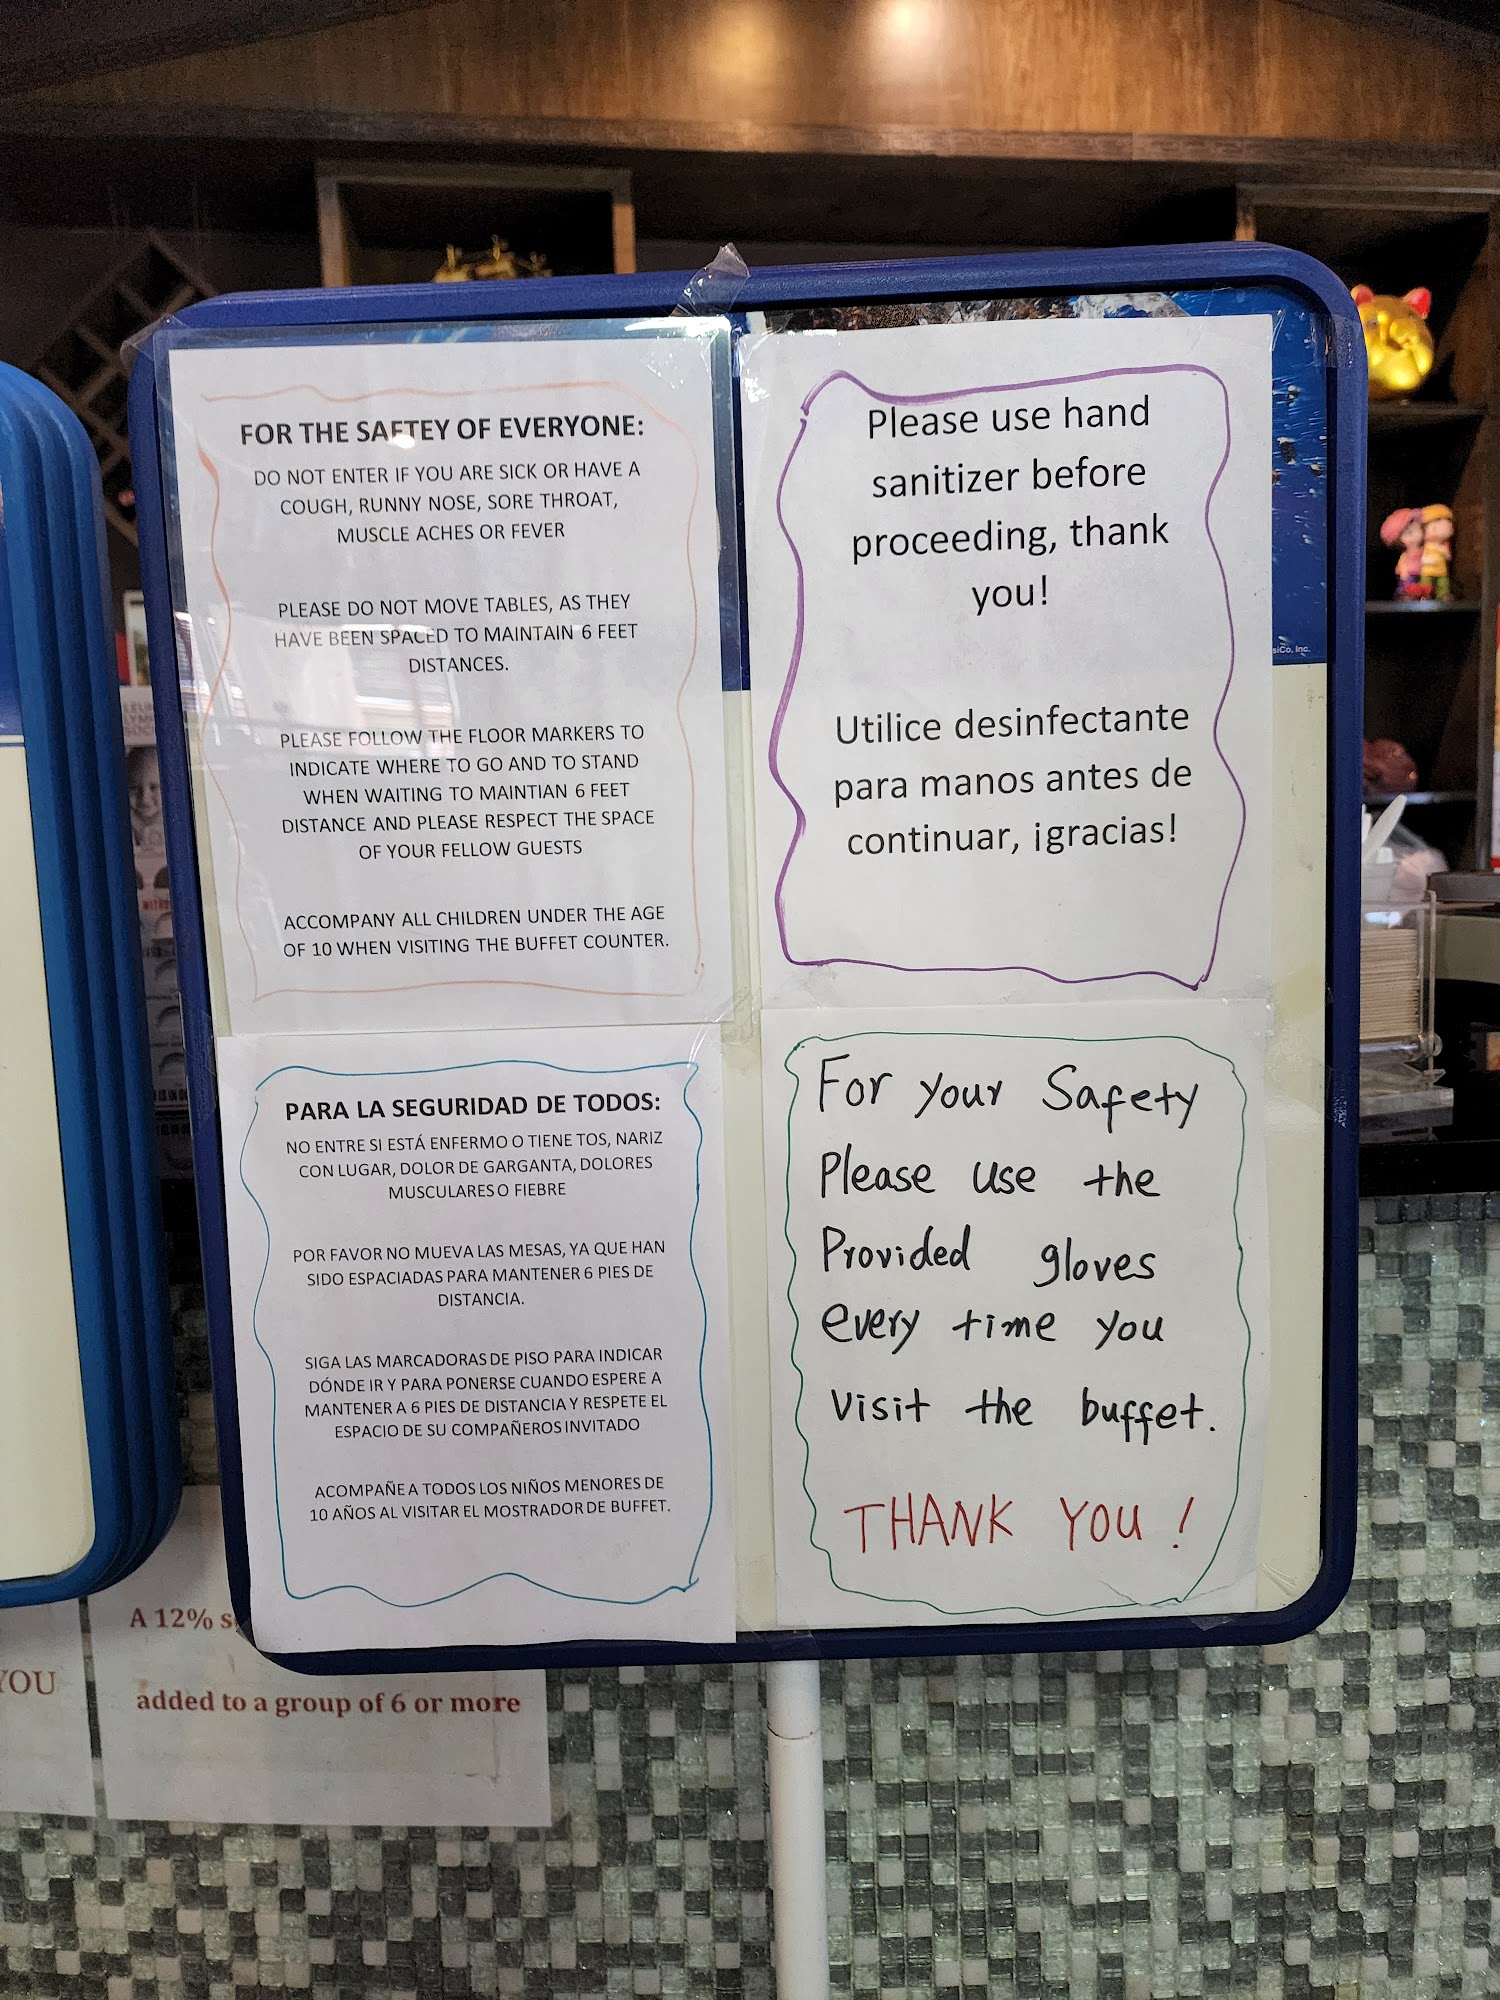 FOR THE SAFTEY OF EVERYONE:
DO NOT ENTER IF YOU ARE SICK OR HAVE A
COUGH, RUNNY NOSE, SORE THROAT,
MUSCLE ACHES OR FEVER
PLEASE DO NOT MOVE TABLES, AS THEY
HAVE BEEN SPACED TO MAINTAIN 6 FEET
DISTANCES.
PLEASE FOLLOW THE FLOOR MARKERS TO
INDICATE WHERE TO GO AND TO STAND
WHEN WAITING TO MAINTIAN 6 FEET
DISTANCE AND PLEASE RESPECT THE SPACE
OF YOUR FELLOW GUESTS
ACCOMPANY ALL CHILDREN UNDER THE AGE
OF 10 WHEN VISITING THE BUFFET COUNTER.
Please use hand
sanitizer before
proceeding, thank
you!
Utilice desinfectante
para manos antes de
continuar, ¡gracias!
siCo, Inc.
PARA LA SEGURIDAD DE TODOS:
NO ENTRE SI ESTÁ ENFERMO O TIENE TOS, NARIZ
CON LUGAR, DOLOR DE GARGANTA, DOLORES
MUSCULARES O FIEBRE
POR FAVOR NO MUEVA LAS MESAS, YA QUE HAN
SIDO ESPACIADAS PARA MANTENER 6 PIES DE
DISTANCIA.
SIGA LAS MARCADORAS DE PISO PARA INDICAR
DÓNDE IR Y PARA PONERSE CUANDO ESPERE A
MANTENER A 6 PIES DE DISTANCIA Y RESPETE EL
ESPACIO DE SU COMPAÑEROS INVITADO
ACOMPAÑE A TODOS LOS NIÑOS MENORES DE
10 AÑOS AL VISITAR EL MOSTRADOR DE BUFFET.
For your Safety
Please use the
Provided gloves
every time you
visit the buffet.
THANK YOU !
A 12% s
added to a group of 6 or more
YOU